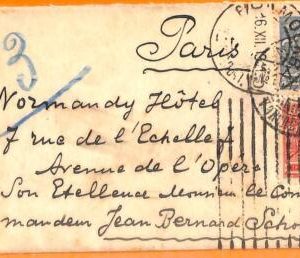 3
Paris
Normandy Hôtel
7 rue de l'Echelle
Avenue de l'Opéra
Son Exellence Monsieur le Com
mandeur Jean Bernard Scho
6.XII.